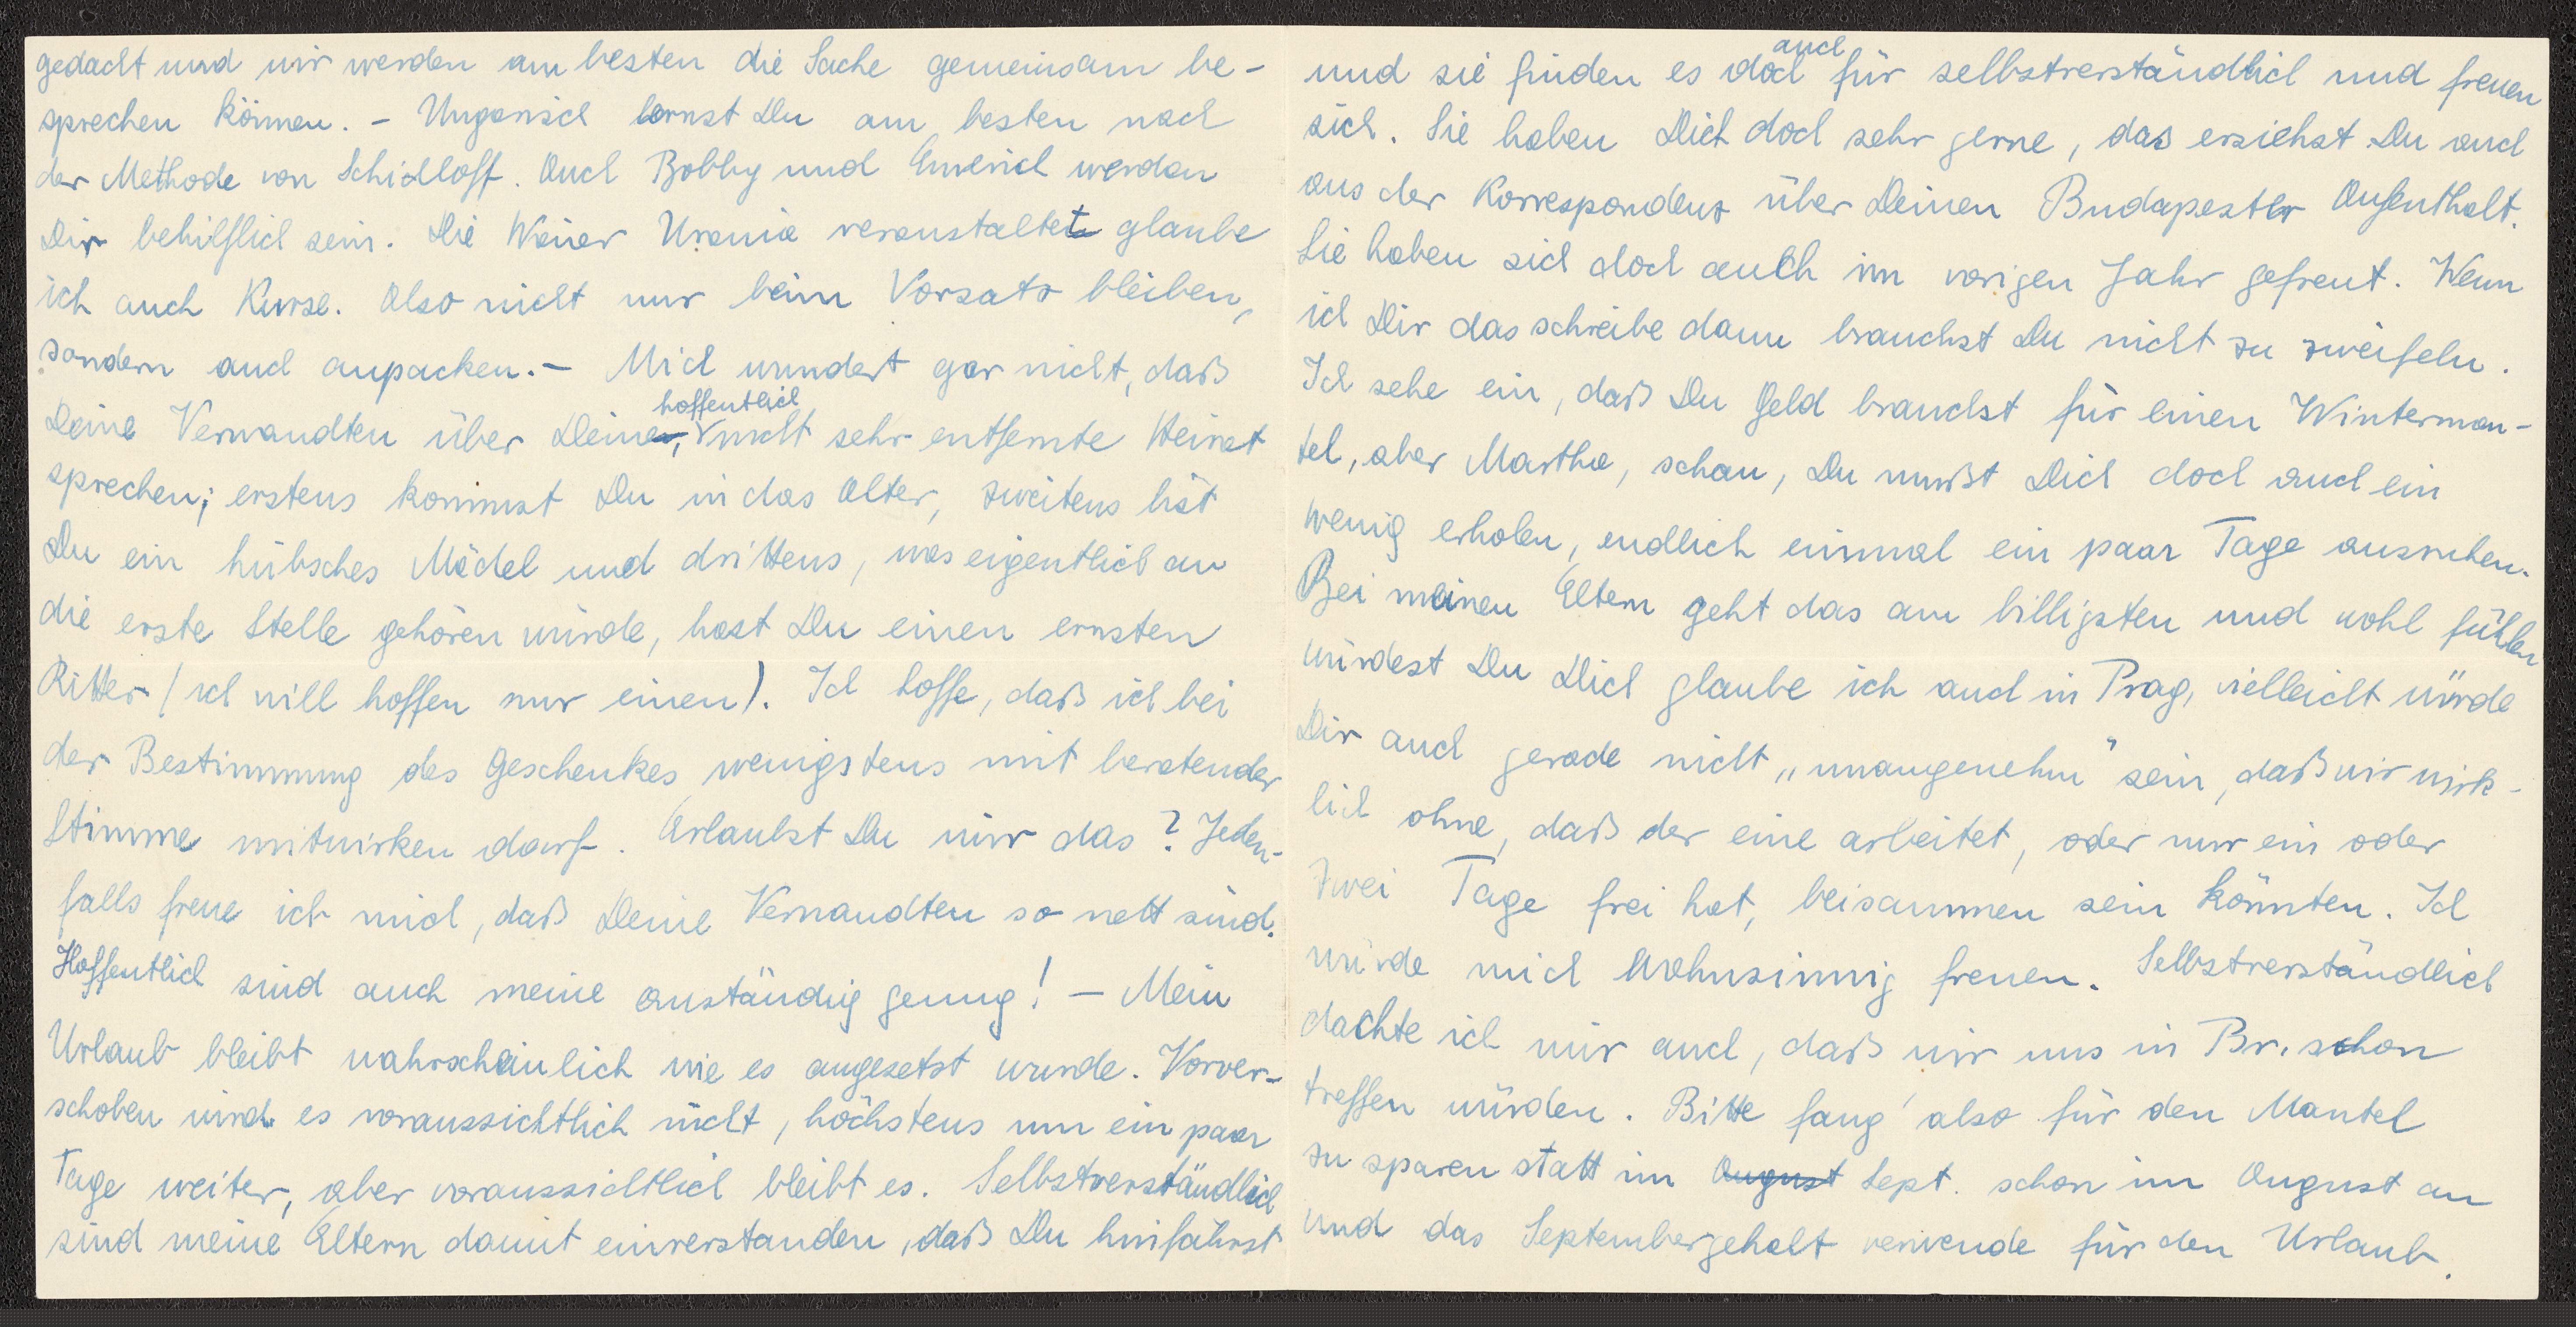 gedacht und wir werden am besten die Sache gemeinsam be-
sprechen können. - Ungarisch lernst Du am besten nach
der Methode von Schidloff. Auch Bobby und Emerich werden
Dir behilflich sein. Die Wiener Urania veranstaltet glaube
ich auch Kurse. Also nicht nur beim Vorsatz bleiben,
sondern auch anpacken. - Mich wundert gar nicht, daß
Deine Verwandten über Deine, hoffentlich nicht sehr entfernte Heirat
sprechen; erstens kommst Du in das Alter, zweitens bist
Du ein hübsches Mädel und drittens, was eigentlich an
die erste Stelle gehören würde, hast Du einen ernsten
Ritter (ich will hoffen nur einen). Ich hoffe, daß ich bei
der Bestimmung des Geschenkes wenigstens mit beratender
Stimme mitwirken darf. Erlaubst Du mir das? Jeden-
falls freue ich mich, daß Deine Verwandten so nett sind.
Hoffentlich sind auch meine anständig genug! - Mein
Urlaub bleibt wahrscheinlich wie es angesetzt wurde. Vorver-
schoben wird es voraussichtlich nicht, höchstens um ein paar
Tage weiter, aber voraussichtlich bleibt es. Selbstverständlich
sind meine Eltern damit einverstanden, daß Du hinfährst
und sie finden es doch auch für selbstverständlich und freuen
sich. Sie haben Dich doch sehr gerne, das ersiehst Du auch
aus der Korrespondenz über Deinen Budapester Aufenthalt.
Sie haben sich doch auch im vorigen Jahr gefreut. Wenn
ich Dir das schreibe dann brauchst Du nicht zu zweifeln.
Ich sehe ein, daß Du Geld brauchst für einen Winterman-
tel, aber Martha, schau, Du mußt Dich doch auch ein
wenig erholen, endlich einmal ein paar Tage ausruhen.
Bei meinen Eltern geht das am billigsten und wohl fühlen
würdest Du Dich glaube ich auch in Prag, vielleicht würde
Dir auch gerade nicht „unangenehm" sein, daß wir wirk-
lich ohne, daß der eine arbeitet, oder nur ein oder
zwei Tage frei hat, beisammen sein könnten. Ich
würde mich wahnsinnig freuen. Selbstverständlich
dachte ich mir auch, daß wir uns in Br. schon
treffen würden. Bitte fang' also für den Mantel
zu sparen statt im August Sept. schon im August an
und das Septembergehalt verwende für den Urlaub.